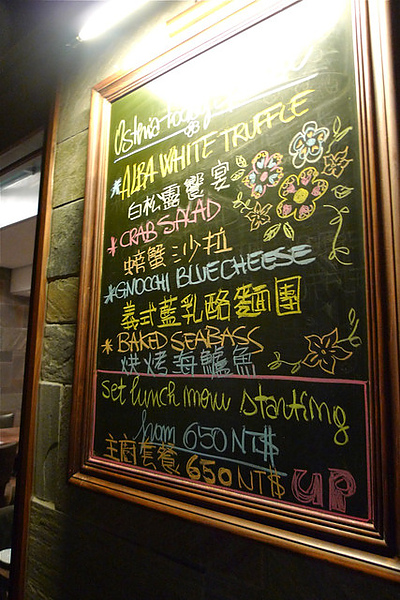 Osteria
*ALBA WHITE TRUFFLE
白松露饗宴
*CRAB SALAD
螃蟹沙拉
*GNOCCHI BLUE CHEESE
義式藍乳酪麵團
*BAKED SEABASS
烘烤海鱸魚
set lunch menu starting
from 650 NT$
主廚套餐 650 NT$ UP